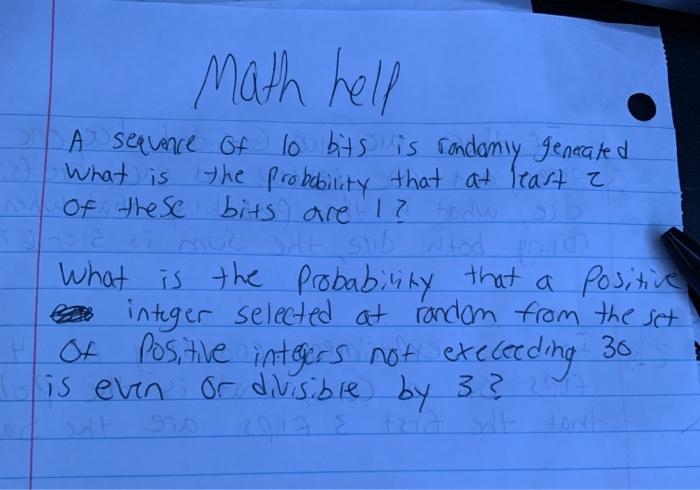 Math help
A sequence of 10 bits is randomly generated
What is the probability that at least 2
of these bits are 1?
What is the probability that a positive
integer selected at random from the set
of positive integers not exeleeding 30
is even or divisible by 3?